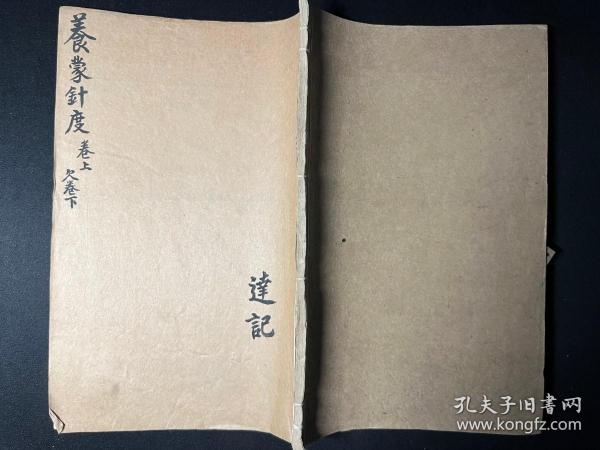 養蒙針度
卷上
欠卷下
達記
孔夫子旧書网
www.kongfz.com